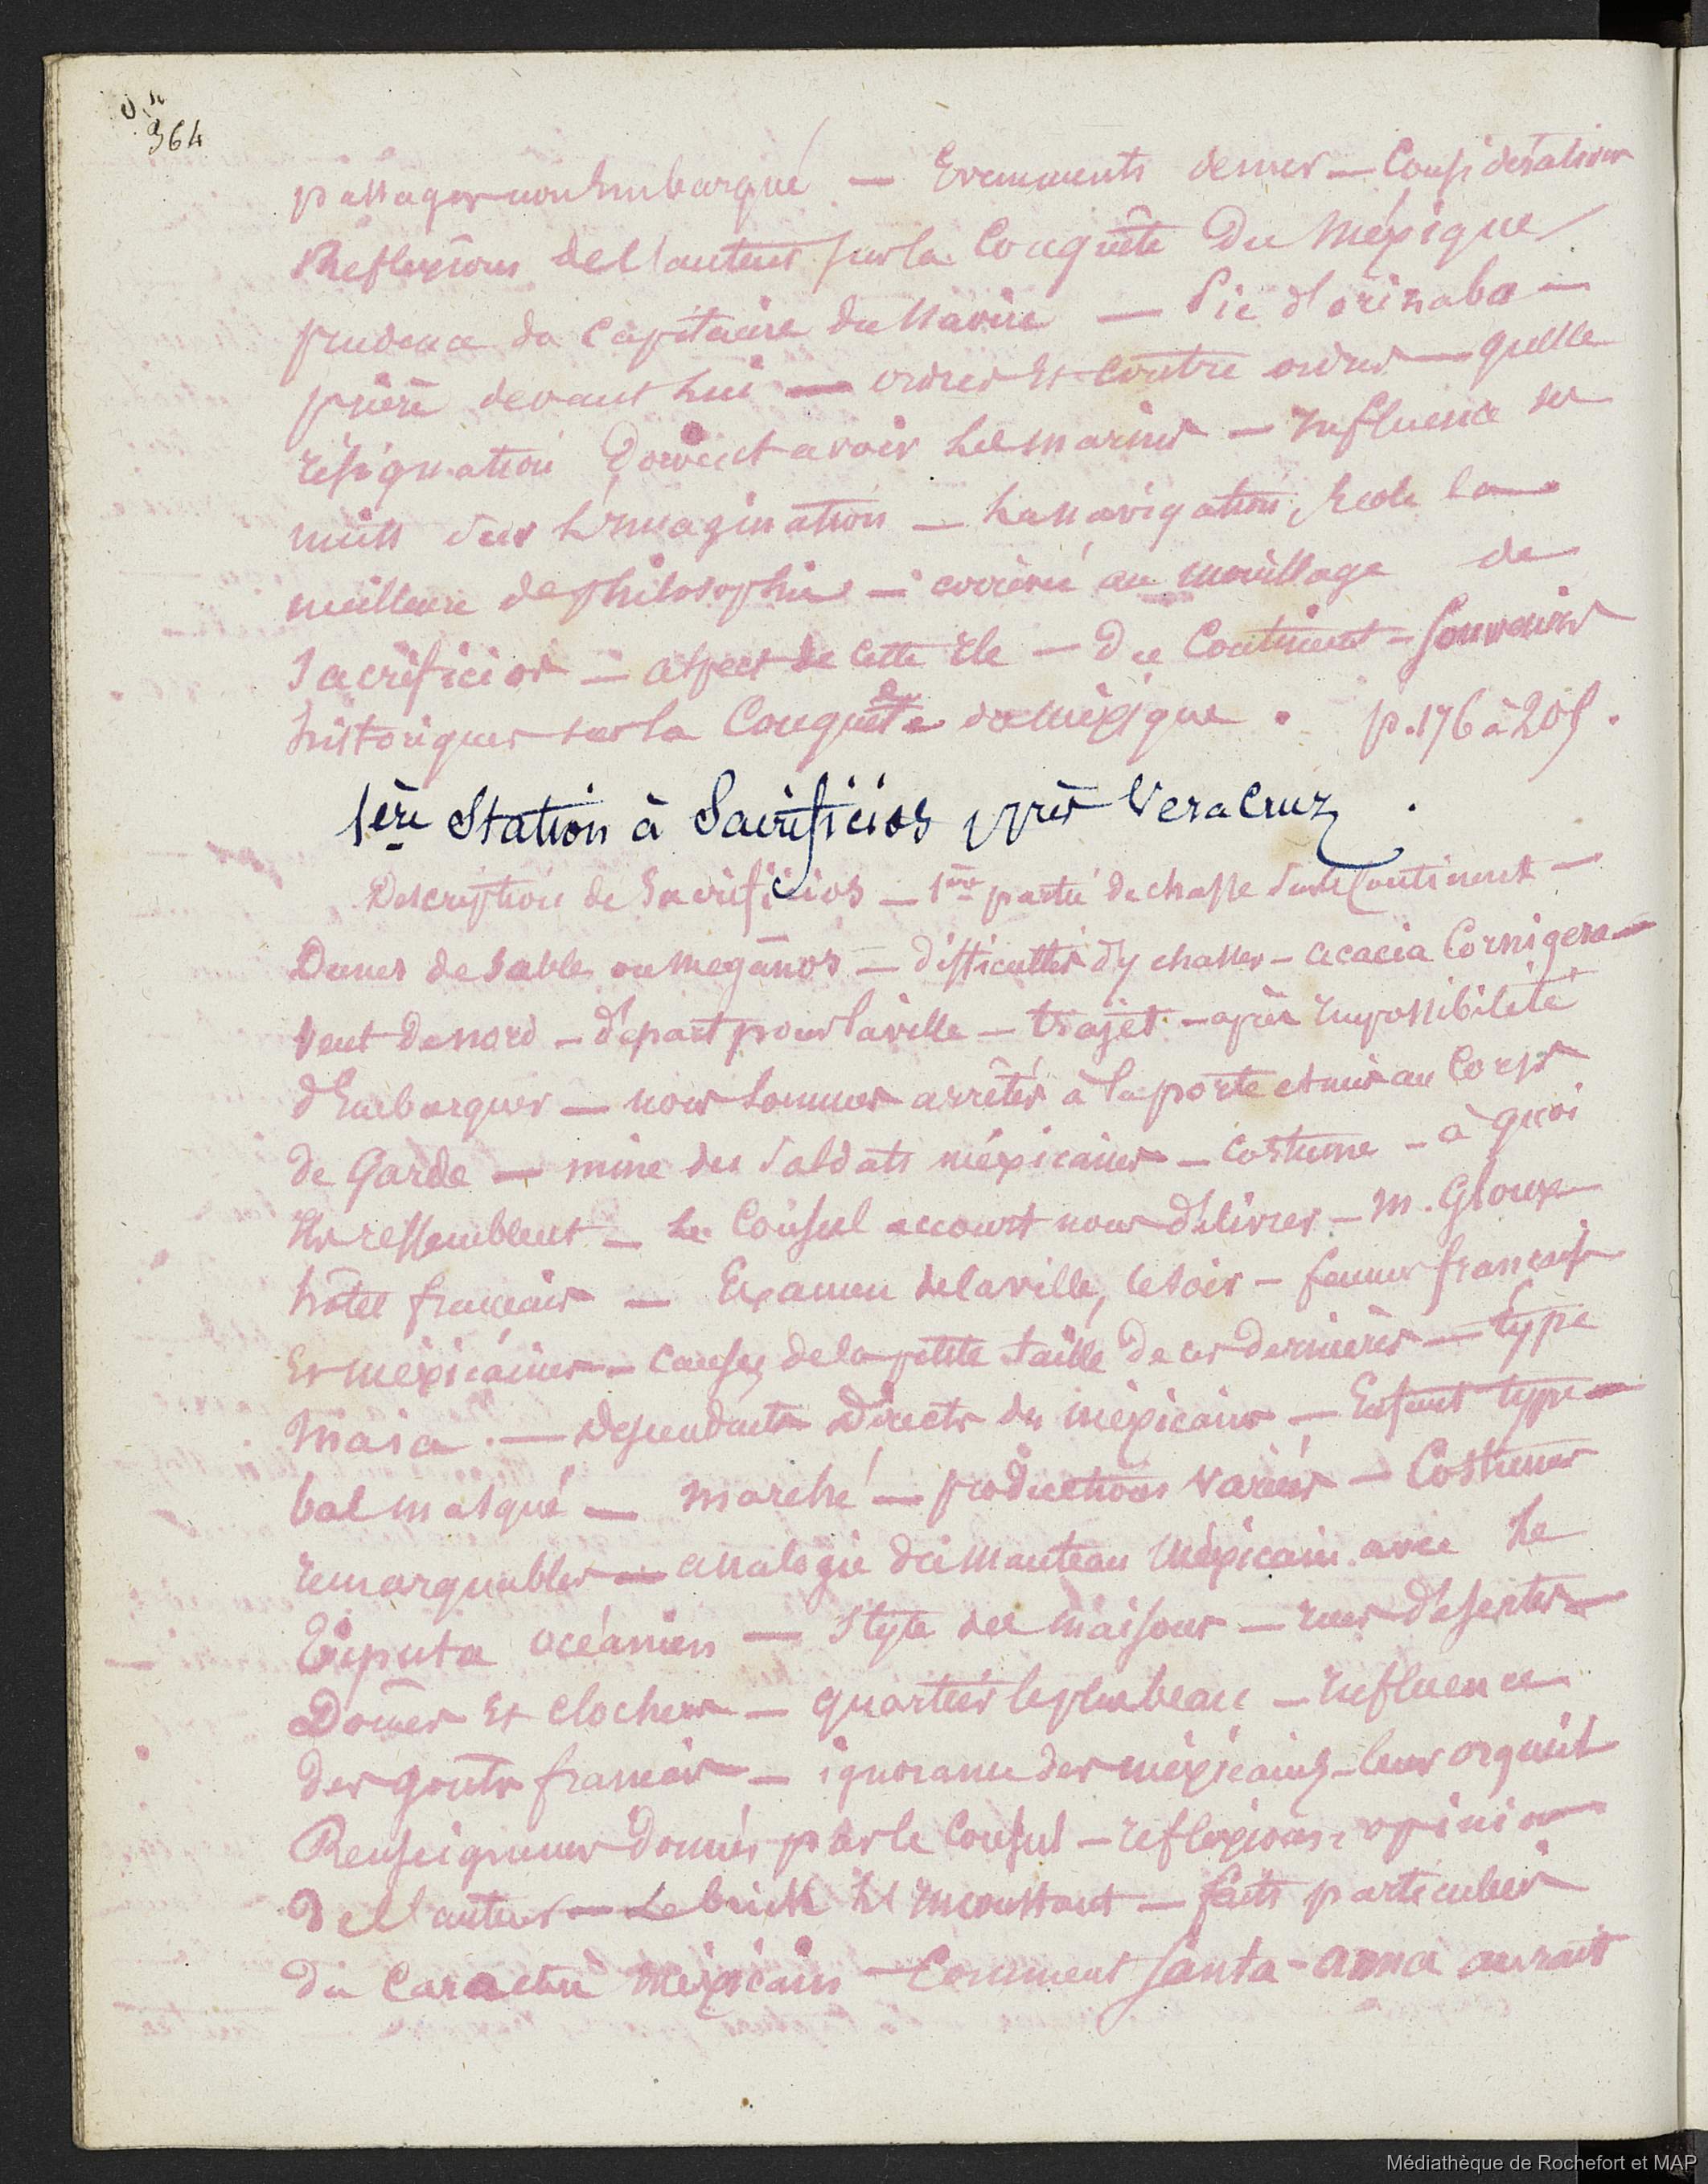 364
passager non Embarqué — Evennements de mer — Considération
Reflexions de l'auteur sur la Conquête Du Méxique
prudence du Capitaine du Navire — Pic d'orizaba —
prière devant Lui — ordres Et contre ordres — quelle
résignation Doivent avoir Les marins — Influence des
nuits sur L'Imagination — La navigation, Ecole la
meilleure de philosophie — arrivée au mouillage de
Sacrificios — aspect de cette Ile — Du Continent — Souvenirs
historiques sur la Conquête du méxique . p. 176 à 205 .
1ère Station à Sacrificios près VeraCruz .
Description de Sacrificios — 1ère partie de chasse sur le Continent —
Dunes de Sables ou meganos — difficultés d'y chasser — acacia Cornigera —
Vent de nord — départ pour la ville — trajet — après Impossibilité
d'Embarquer — nous sommes arrêtés à la porte et mis au Corps
de Garde — mine des Soldats méxicains — Costume — à quoi
Ils ressemblent — Le Consul accourt nous délivrer — M. Gloux
hôtel français — Examen de la ville, le soir — femmes françaises
Et méxicaines — causes de la petite taille De ces dernières — type
maia . — Descendants Directs des méxicains — Enfant type —
bal masqué — marché — productions variées — Costumes
remarquables — analogie du manteau Méxicain avec Le
Tiputa océanien — Style des maisons — rues désertes —
Dômes Et clochers — quartier le plus beau — Influence
des goûts français — ignorance des méxicains — leur orgueil
Renseignemens Donnés par le Consul — reflexions, opinion
De l'auteur — Le brick Le Inconstant — faits particuliers
du Caractère méxicain — Comment Santa-anna aurait
Médiathèque de Rochefort et MAP